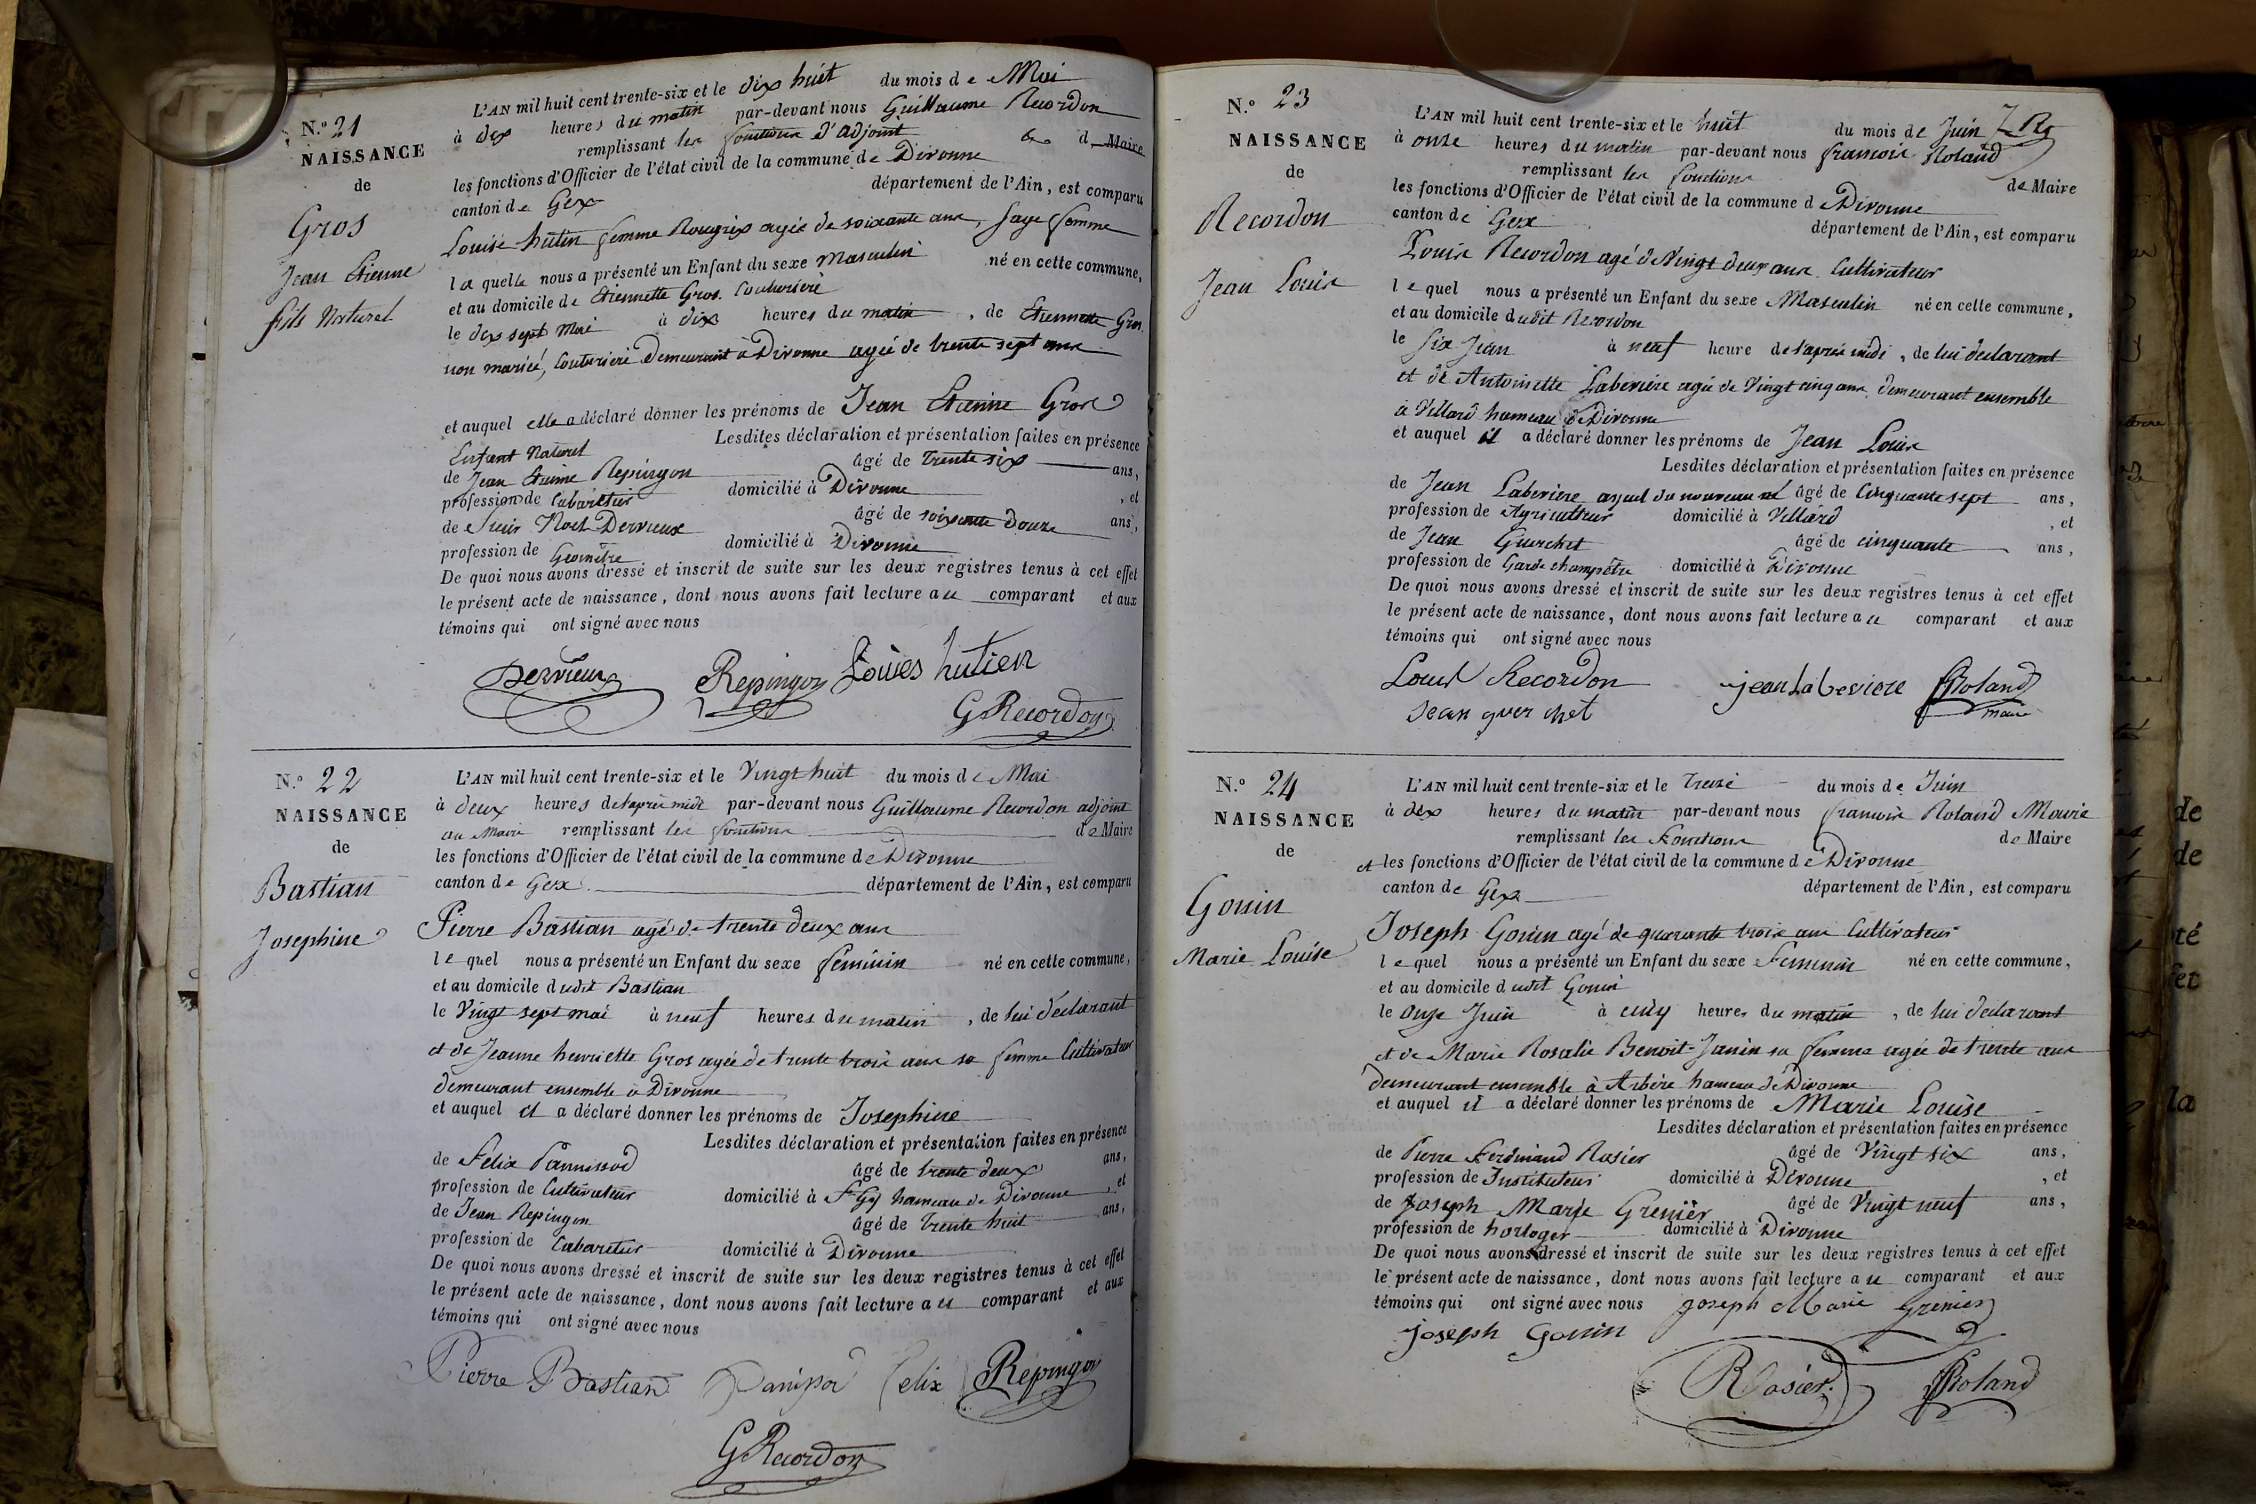 N.º 21
NAISSANCE
de
Gros
Jean Etienne
fils Naturel
L'AN mil huit cent trente-six et le dix huit du mois de Mai
à dix heures du matin par-devant nous Guillaume Recordon
remplissant les fonctions d'adjoint d Maire
les fonctions d'Officier de l'état civil de la commune de Divonne
canton de Gex département de l'Ain, est comparu
Louise hutin femme Rougrix agée de soixante ans, Sage femme
la quelle nous a présenté un Enfant du sexe Masculin né en cette commune,
et au domicile de Etiennette Gros. Couturière
le dix sept Mai à dix heures du matin, de Etiennette Gros
non mariée, Couturière demeurant à Divonne agée de trente sept ans
et auquel elle a déclaré donner les prénoms de Jean Etienne Gros
Enfant Naturel Lesdites déclaration et présentation faites en présence
de Jean Etienne Repingon âgé de trente six ans,
profession de Cabaretier domicilié à Divonne, et
de Sieur Noel Dervieux âgé de soixante douze ans,
profession de Geomêtre domicilié à Divonne
De quoi nous avons dressé et inscrit de suite sur les deux registres tenus à cet effet
le présent acte de naissance, dont nous avons fait lecture au comparant et aux
témoins qui ont signé avec nous
Dervieux Repingon Löuies hutien
GRecordon
N.º 22
NAISSANCE
de
Bastian
Josephine
L'AN mil huit cent trente-six et le Vingt huit du mois de Mai
à deux heures de l'après midi par-devant nous Guillaume Recordon adjoint
au Maire remplissant les fonctions de Maire
les fonctions d'Officier de l'état civil de la commune de Divonne
canton de Gex département de l'Ain, est comparu
Pierre Bastian agé de trente deux ans
le quel nous a présenté un Enfant du sexe féminin né en cette commune,
et au domicile dudit Bastian
le Vingt sept mai à neuf heures du matin, de lui déclarant
et de Jeanne henriette Gros agée de trente trois ans sa femme Cultivateur
demeurant ensemble à Divonne
et auquel il a déclaré donner les prénoms de Josephine
Lesdites déclaration et présentation faites en présence
de Felix Pannissod âgé de trente deux ans,
profession de Cultivateur domicilié à St Gix hameau de Divonne, et
de Jean Repingon âgé de trente huit ans,
profession de Cabaretier domicilié à Divonne
De quoi nous avons dressé et inscrit de suite sur les deux registres tenus à cet effet
le présent acte de naissance, dont nous avons fait lecture au comparant et aux
témoins qui ont signé avec nous
Pierre Bastian felix Repingon
GRecordon
N.º 23
NAISSANCE
de
Recordon
Jean Louis
L'AN mil huit cent trente-six et le huit du mois de Juin
à onze heures du matin par-devant nous françois Roland
remplissant les fonctions de Maire
les fonctions d'Officier de l'état civil de la commune de Divonne
canton de Gex département de l'Ain, est comparu
Louis Recordon agé de Vingt deux ans Cultivateur
le quel nous a présenté un Enfant du sexe Masculin né en cette commune,
et au domicile dudit Recordon
le six Juin à neuf heure de l'après midi, de lui déclarant
et de Antoinette Laberiere agée de Vingt cinq ans demeurant ensemble
à Villard hameau de Divonne
et auquel il a déclaré donner les prénoms de Jean Louis
Lesdites déclaration et présentation faites en présence
de Jean Laberiere ayeul du nouveau né âgé de Cinquante sept ans,
profession de Agriculteur domicilié à Villard, et
de Jean Guerchet âgé de cinquante ans,
profession de Garde champêtre domicilié à Divonne
De quoi nous avons dressé et inscrit de suite sur les deux registres tenus à cet effet
le présent acte de naissance, dont nous avons fait lecture au comparant et aux
témoins qui ont signé avec nous
Louis Recordon jean Laberiere FRoland
Jean guerchet maire
N.º 24
NAISSANCE
de
Gonin
Marie Louise
L'AN mil huit cent trente-six et le treize du mois de Juin
à dix heures du matin par-devant nous françois Roland Maire
remplissant les Fonctions de Maire
et les fonctions d'Officier de l'état civil de la commune de Divonne
canton de Gex département de l'Ain, est comparu
Joseph Gonin agé de quarante trois ans Cultivateur
le quel nous a présenté un Enfant du sexe Féminin né en cette commune,
et au domicile dudit Gonin
le onze Juin à cinq heures du matin, de lui déclarant
et de Marie Rosalie Benoit-Janin sa femme agée de trente ans
demeurant ensemble à Arbère hameau de Divonne
et auquel il a déclaré donner les prénoms de Marie Louise
Lesdites déclaration et présentation faites en présence
de Pierre Ferdinand Rosier âgé de Vingt six ans,
profession de Instituteur domicilié à Divonne, et
de Joseph Marie Grenier âgé de Vingt neuf ans,
profession de horloger domicilié à Divonne
De quoi nous avons dressé et inscrit de suite sur les deux registres tenus à cet effet
le présent acte de naissance, dont nous avons fait lecture au comparant et aux
témoins qui ont signé avec nous joseph Marie Grenier
joseph Gonin
Rosier FRoland